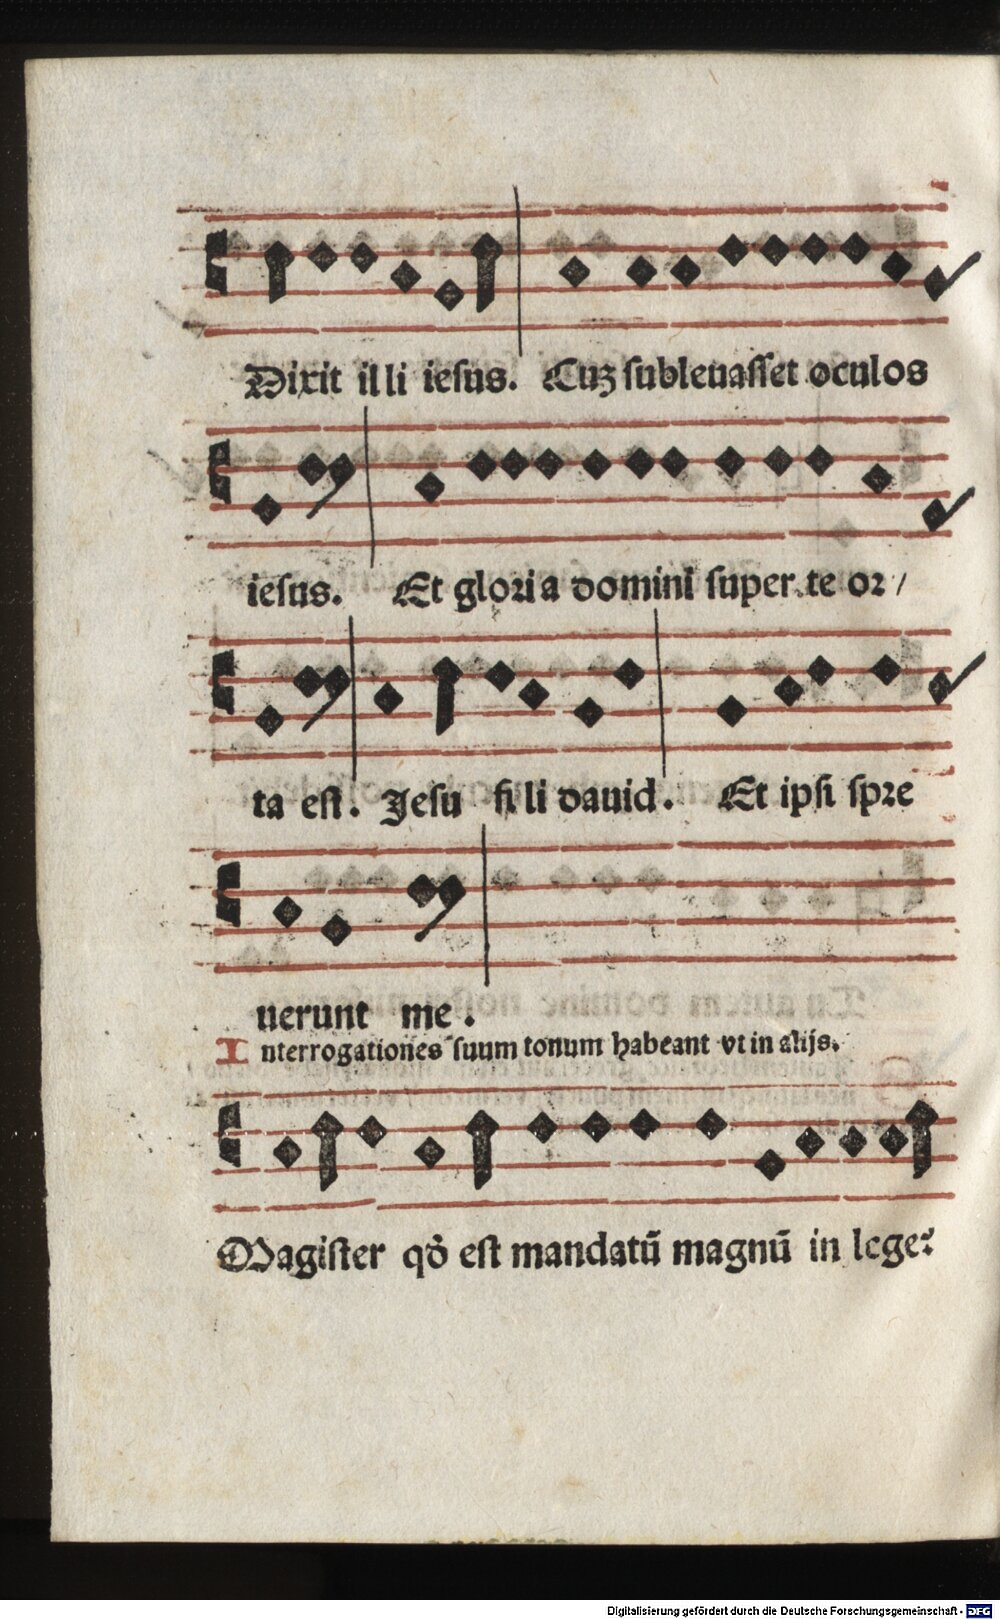 Dixit illi iesus. Cuꝫ subleuasset oculos
iesus. Et gloria domini super te or/
ta est. Jesu fili dauid. Et ipsi spre
uerunt me.
Interrogationes suum tonum habeant vt in alijs.
Magister qď est mandatū magnū in lege?
Digitalisierung gefördert durch die Deutsche Forschungsgemeinschaft - DFG